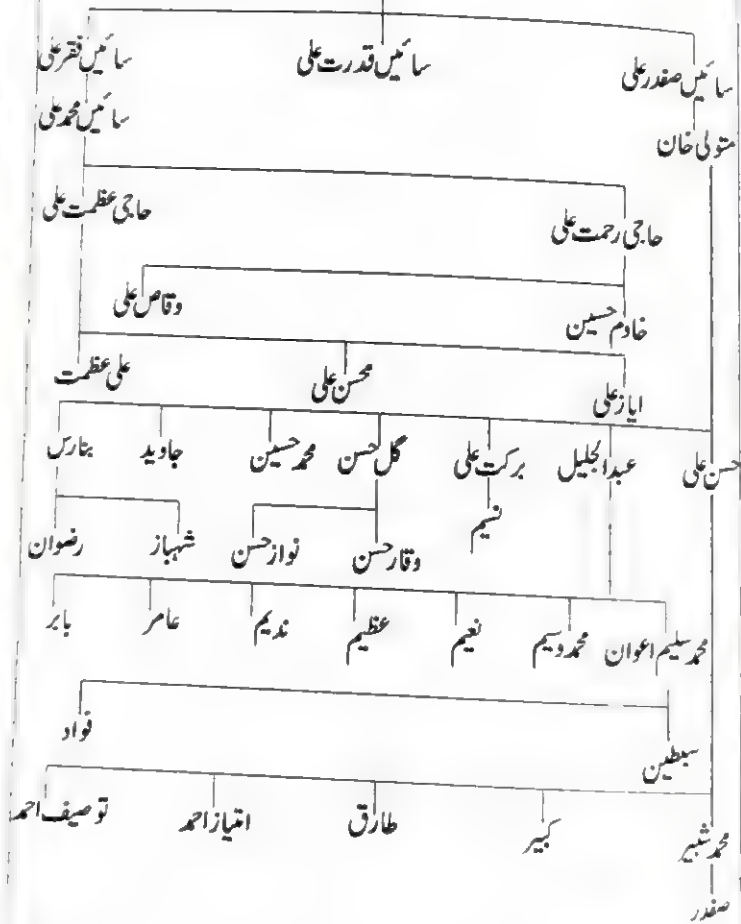 سائیں صفدر علی سائیں قدرت علی سائیں فقر علی
متولی خان سائیں محمد علی
حاجی رحمت علی حاجی عظمت علی
خادم حسین وقاص علی
ایاز علی محسن علی علی عظمت
حسن علی عبدالجلیل برکت علی گل حسن محمد حسین جاوید بنارس
نسیم وقار حسن نواز حسن شہباز رضوان
محمد سلیم اعوان محمد وسیم نعیم عظیم ندیم عامر بابر
سبطین فواد
محمد شبیر کبیر طارق امتیاز احمد توصیف احمد
صفدر